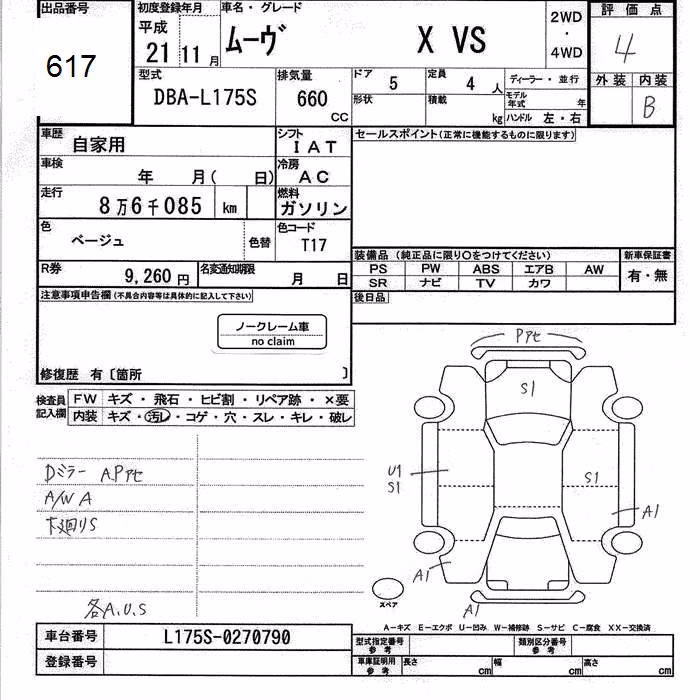 出品番号
617
初度登録年月
平成
21 11 月
車名・グレード
ムーヴ X VS
2WD
・
4WD
評価点
4
外装 内装
B
型式
DBA-L175S
排気量
660
CC
ドア 5
定員 4 人
形状
積載 kg
ディーラー・並行
モデル年式 年
ハンドル 左・右
車歴
自家用
シフト
IAT
車検
年 月( 日)
冷房
AC
走行
8万6千085 km
燃料
ガソリン
色
ベージュ
色替
色コード
T17
R券
9,260 円
名変通知期限
月 日
セールスポイント(正常に機能するものに限ります)
装備品 (純正品に限り〇をつけてください)
PS PW ABS エアB AW
SR ナビ TV カワ
新車保証書
有・無
後日品
注意事項申告欄(不具合内容等は具体的に記入して下さい)
ノークレーム車
no claim
修復歴 有〔箇所 〕
検査員
記入欄
FW キズ・飛石・ヒビ割・リペア跡・×要
内装 キズ・汚レ・コゲ・穴・スレ・キレ・破レ
Dミラー A,Pアセ
A/W A
下廻りS
各A.U.S
Pアセ
S1
U1
S1
S1
A1
A1
A1
スペア
A−キズ E−エクボ U−凹み W−補修跡 S−サビ C−腐食 XX−交換済
車台番号
L175S-0270790
登録番号
型式指定番号
参考
類別区分番号
参考
車庫証明用
参考
長さ cm
幅 cm
高さ cm